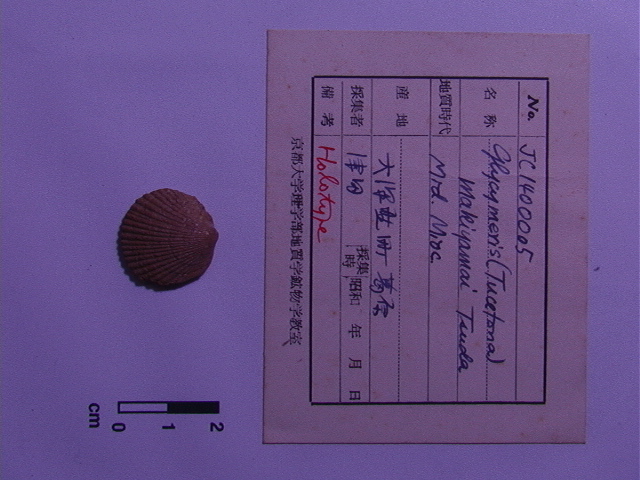 No. JC1400005
名称 Glycymeris (Tucetona)
makiyamai Tsuda
地質時代 Mid. Mioc.
産地
採集者 津田 採集時 昭和 年 月 日
備考 Holotype
京都大学理学部地質学鉱物学教室
cm
0 1 2